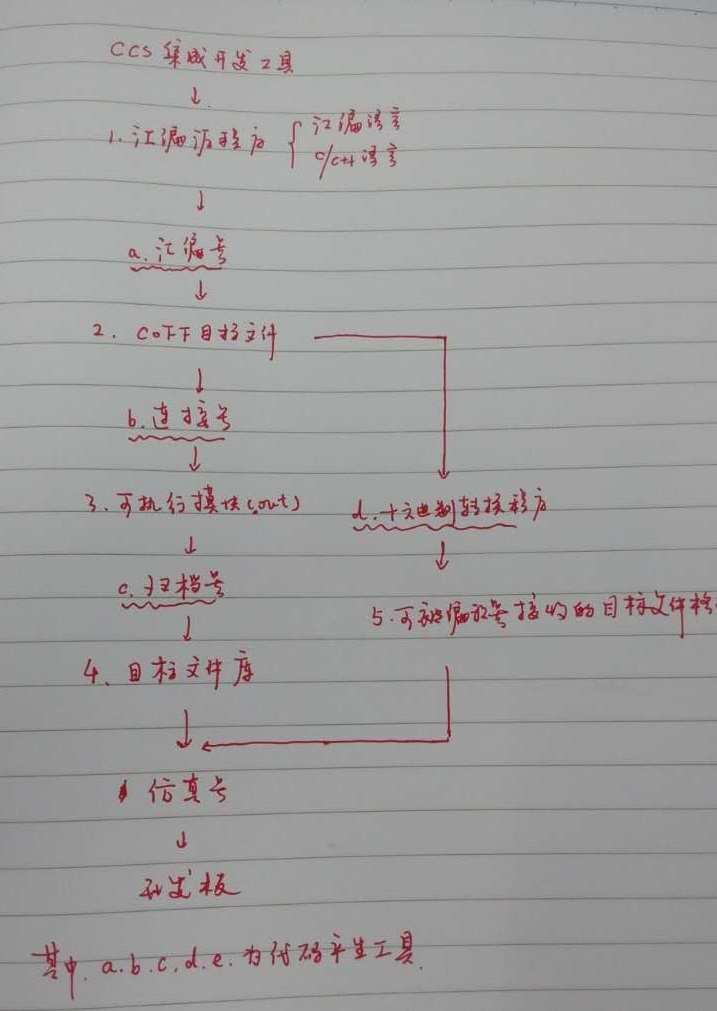 CCS 集成开发工具
1. 汇编源程序 { 汇编语言
c/c++ 语言
a. 汇编器
2. COFF目标文件
b. 连接器
3. 可执行模块(.out)
d. 十六进制转换程序
c. 归档器
5. 可被编程器接收的目标文件格
4. 目标文件库
仿真器
开发板
其中. a.b.c.d.e. 为代码产生工具.